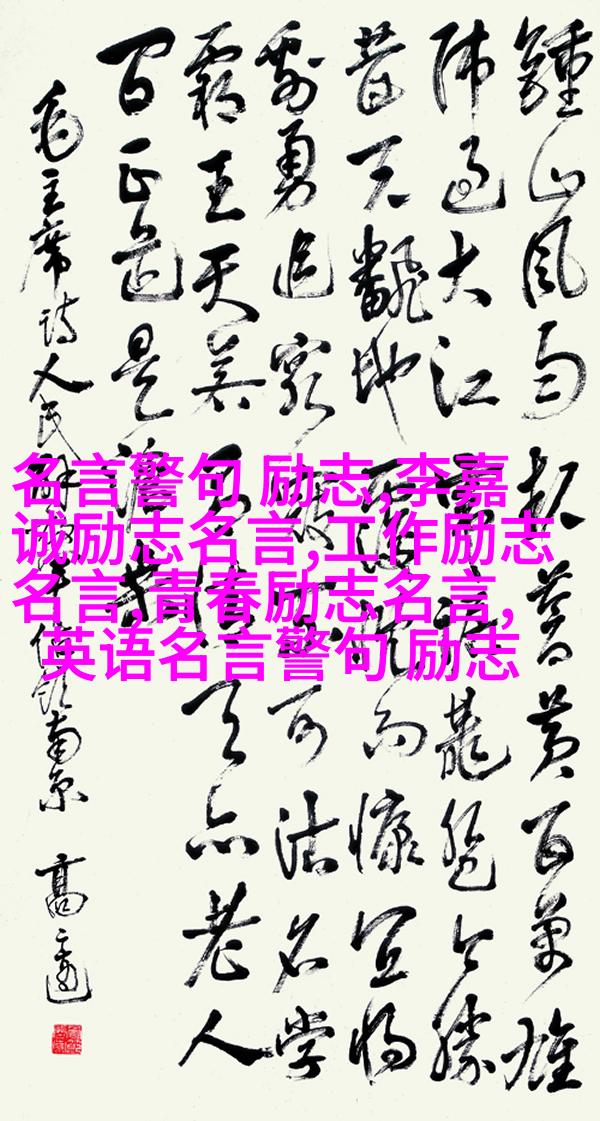 鍾山風雨起蒼黄百萬雄
师过大江龍盘今勝
昔天翻地覆慨而慷宜将
剩勇追窮可沽名学
霸王天若有情天亦老人
间正道是滄桑
毛主席诗人民解放军占领南京
名言警句 励志,李嘉
诚励志名言,工作励志
名言,青春励志名言,
英语名言警句 励志